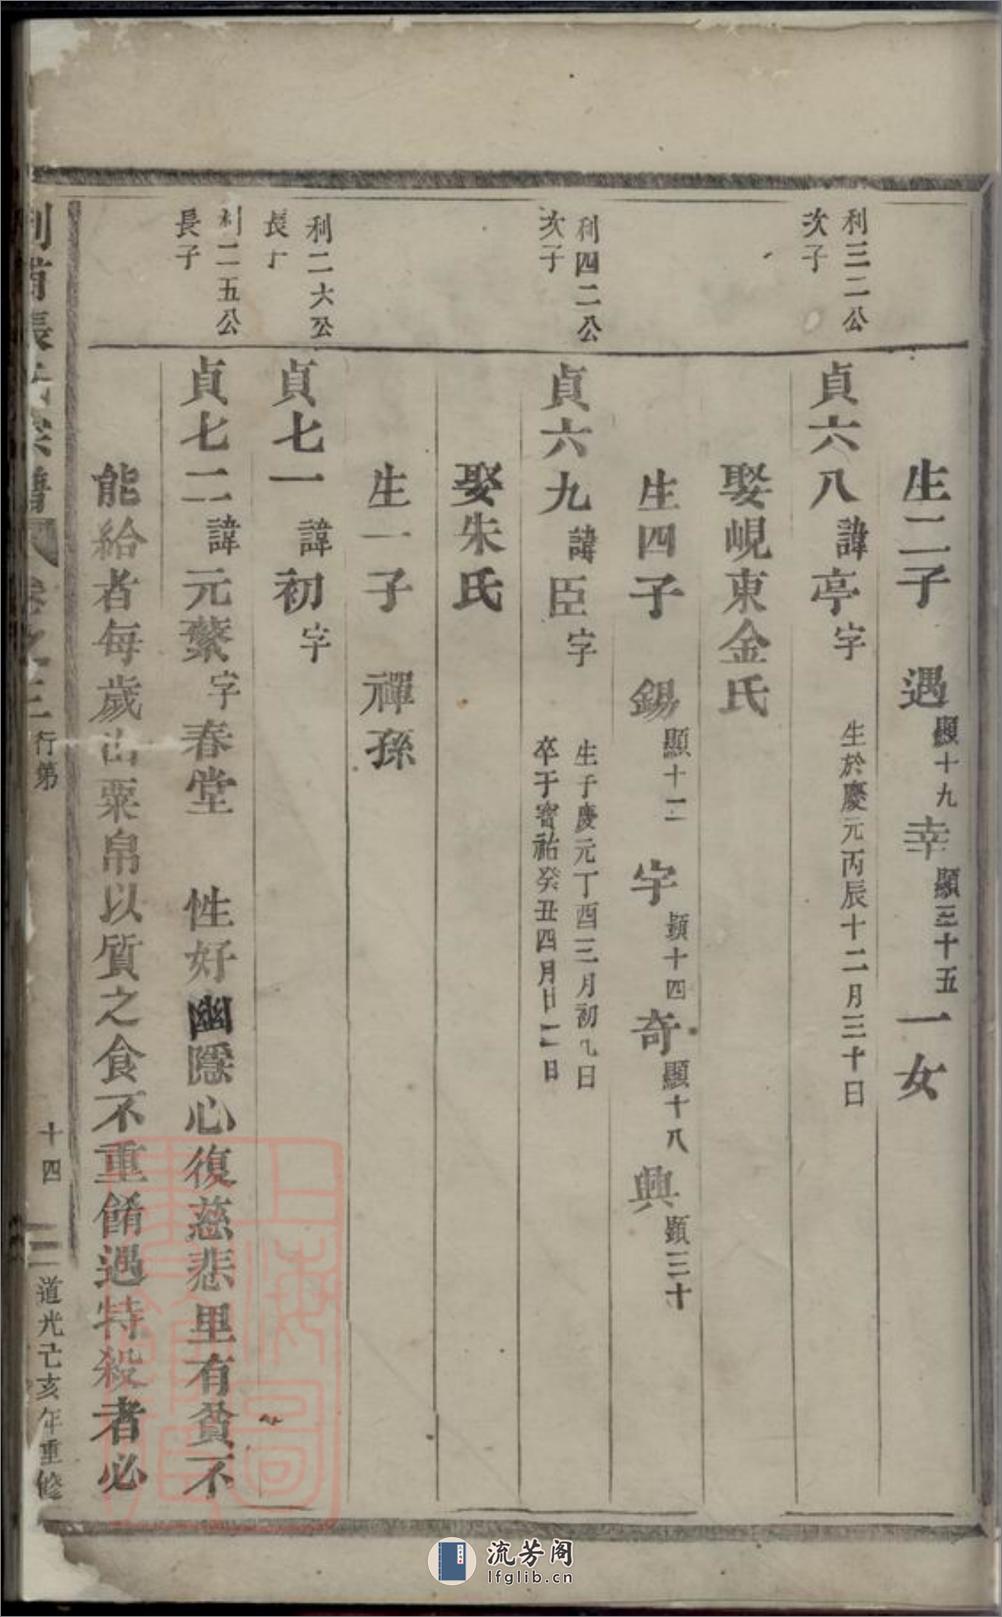 生二子 遇顯十九 幸顯三十五 一女
利三二公
次子
貞六八諱亭字 生於慶元丙辰十二月三十日
娶峴東金氏
生四子 錫顯十二 宇顯十四 奇顯十八 興顯三十
利四二公
次子
貞六九諱臣字 生于慶元丁酉三月初九日
卒于寳祐癸丑四月廿二日
娶朱氏
生一子 禪孫
利二六公
長子
貞七一諱初字
利二五公
長子
貞七二諱元蘩字春堂 性好幽隱心復慈悲里有貧不
能給者每歲出粟帛以質之食不重餚遇特殺者必
張氏宗譜 卷之三 行第
十四
道光己亥年重修
上海圖書館藏
流芳阁
lfglib.cn